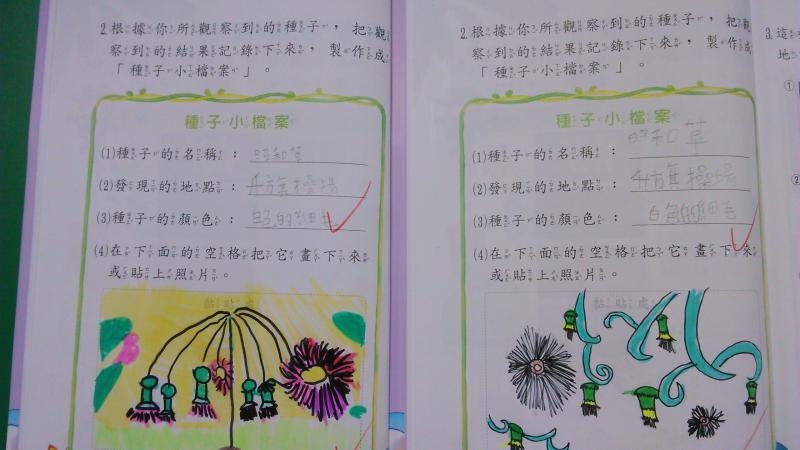 2.根據你所觀察到的種子，把觀
察到的結果記錄下來，製作成
「種子小檔案」。
種子小檔案
(1)種子的名稱：昭和草
(2)發現的地點：升旗操場
(3)種子的顏色：白色的細毛
(4)在下面的空格把它畫下來
或貼上照片。
黏貼處
2.根據你所觀察到的種子，把觀
察到的結果記錄下來，製作成
「種子小檔案」。
種子小檔案
(1)種子的名稱：昭和草
(2)發現的地點：升旗操場
(3)種子的顏色：白色細毛
(4)在下面的空格把它畫下來
或貼上照片。
黏貼處
3.這
地
①
②